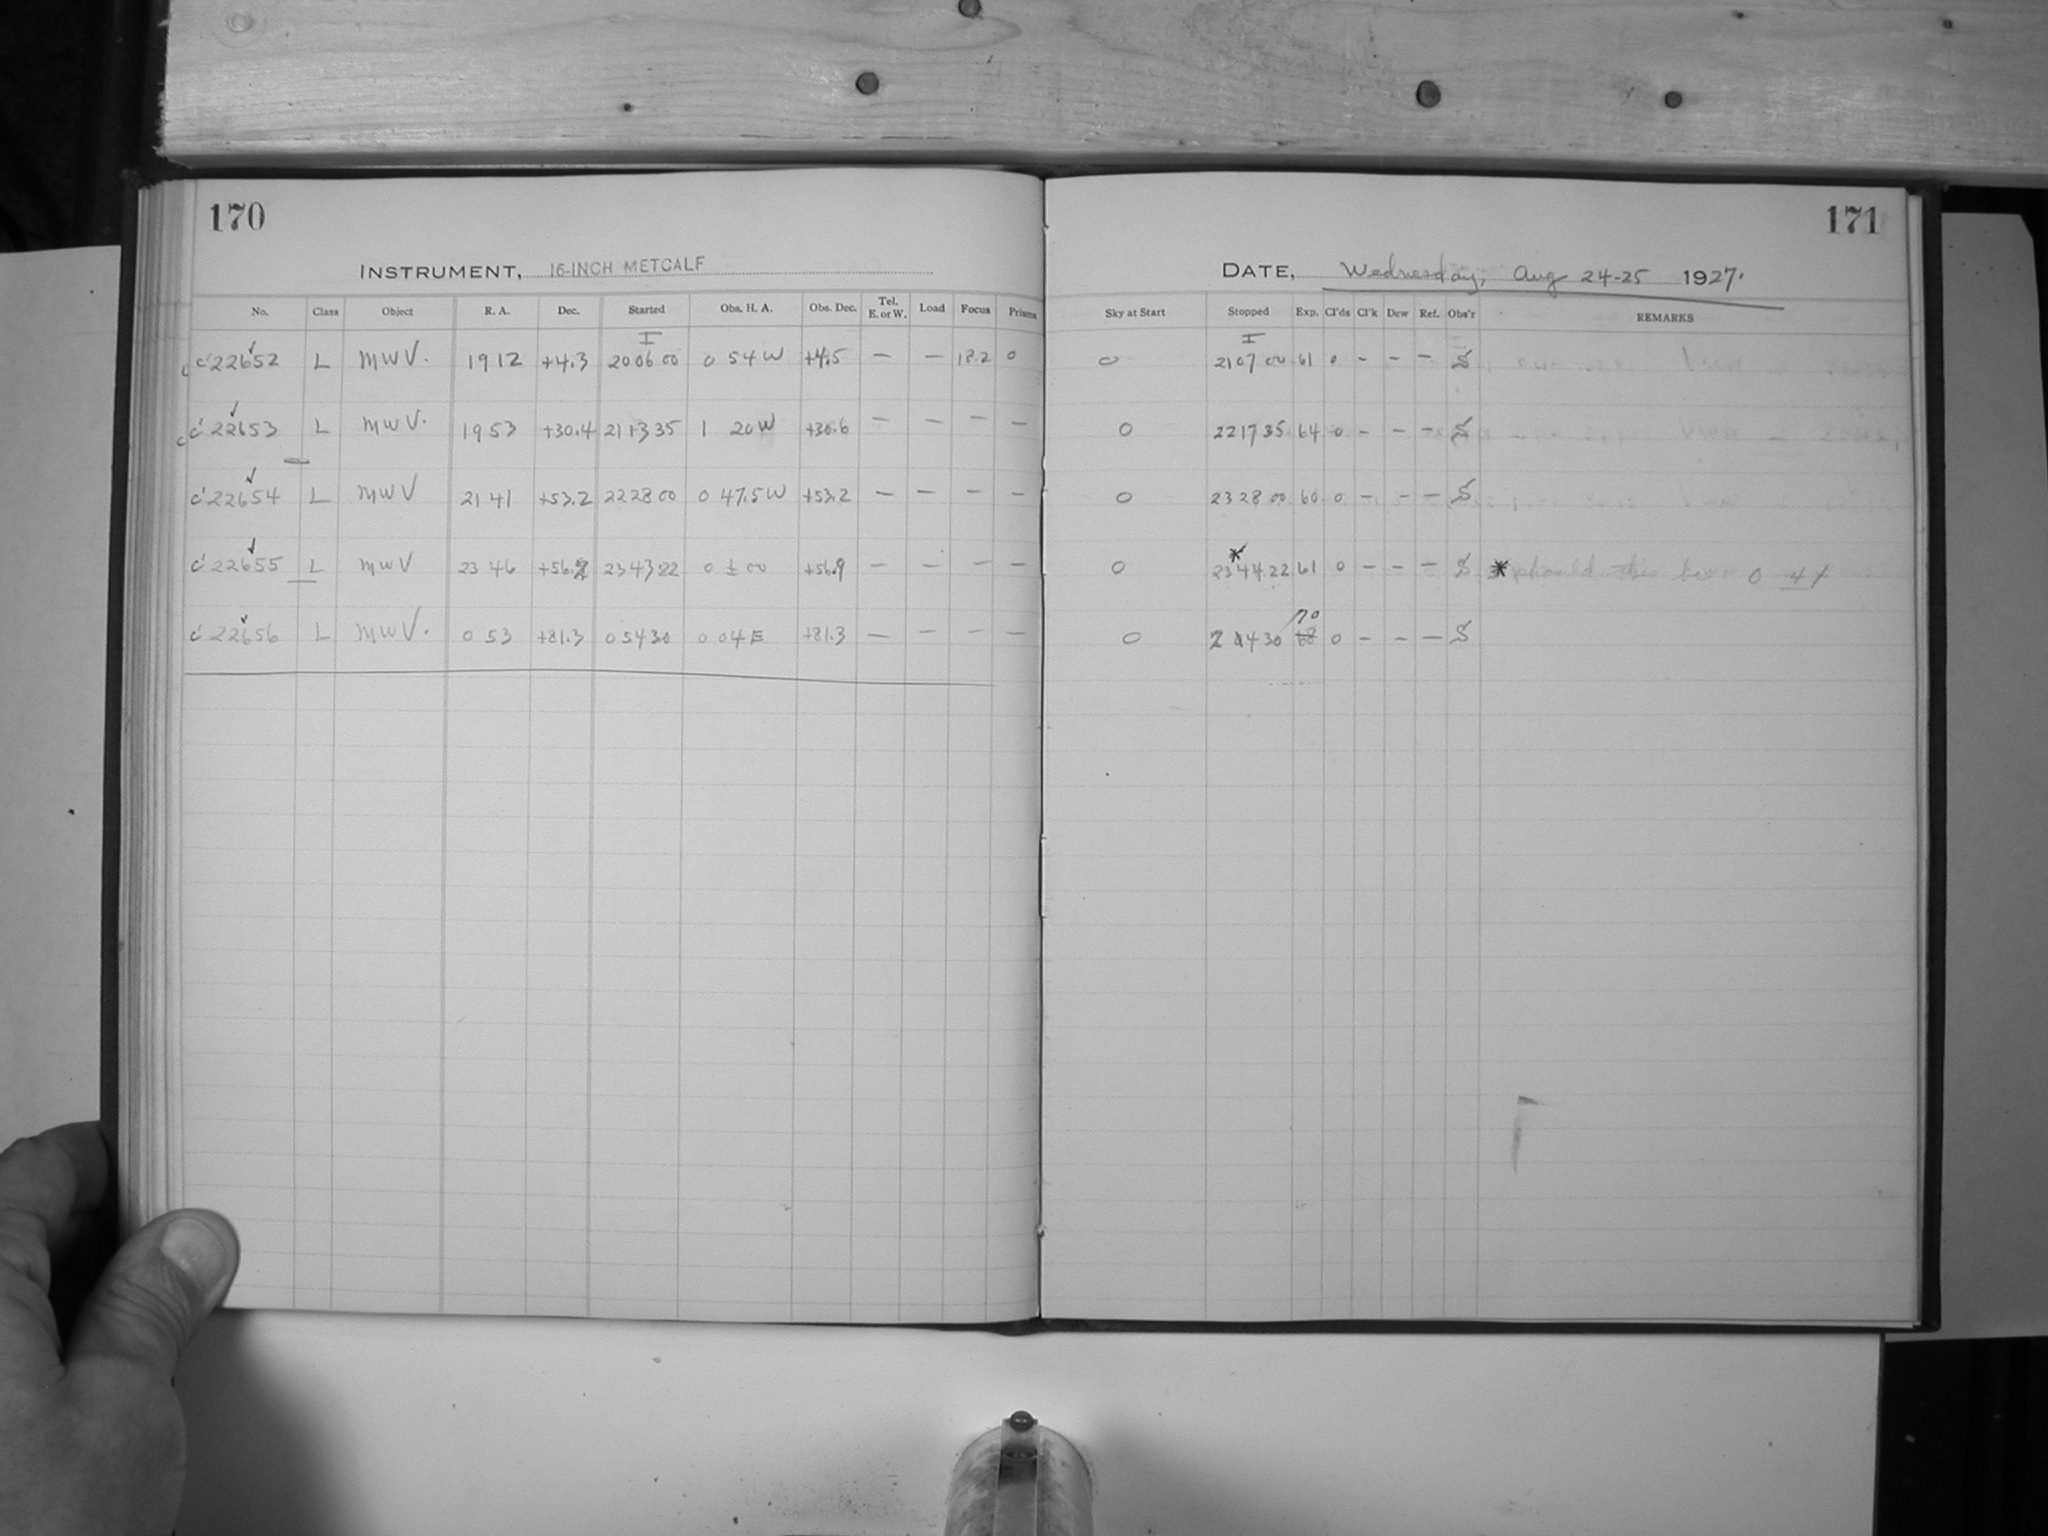 170
INSTRUMENT, 16-INCH METCALF
No. Class Object R. A. Dec. Started Obs. H. A. Obs. Dec. Tel. E. or W. Load Focus Prisms
I
c'22652 L MWV. 19 12 +4.3 20 06 00 0 54 W +4.5 — — 18.2 0
c'22653 L MWV. 19 53 +30.4 21 13 35 1 20 W +30.6 — — — —
c'22654 L MWV 21 41 +53.2 22 28 00 0 47.5 W +53.2 — — — —
c'22655 L MWV 23 46 +56.2 23 43 22 0 ± 00 +56.9 — — — —
c'22656 L MWV. 0 53 +81.3 0 54 30 0 04 E +81.3 — — — —
171
DATE, Wednesday, Aug 24-25 1927.
Sky at Start Stopped Exp. Cl'ds Cl'k Dew Ref. Obs'r REMARKS
I
0 21 07 00 61 0 - - - S
0 22 17 35 64 0 - - - S
0 23 28 00 60 0 - - - S
*
0 23 44 22 61 0 - - - S * should this be 0 44
70
0 2 4 30 68 0 - - - S